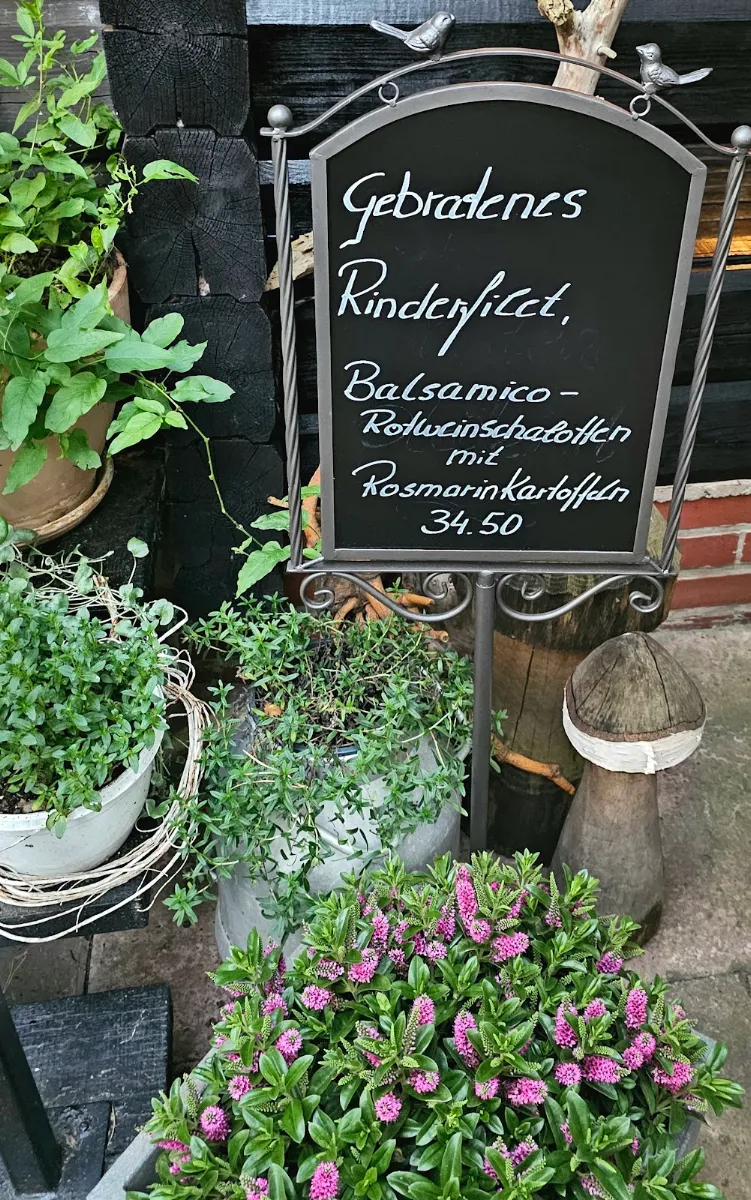 Gebratenes
Rinderfilet,
Balsamico-
Rotweinschalotten
mit
Rosmarinkartoffeln
34.50